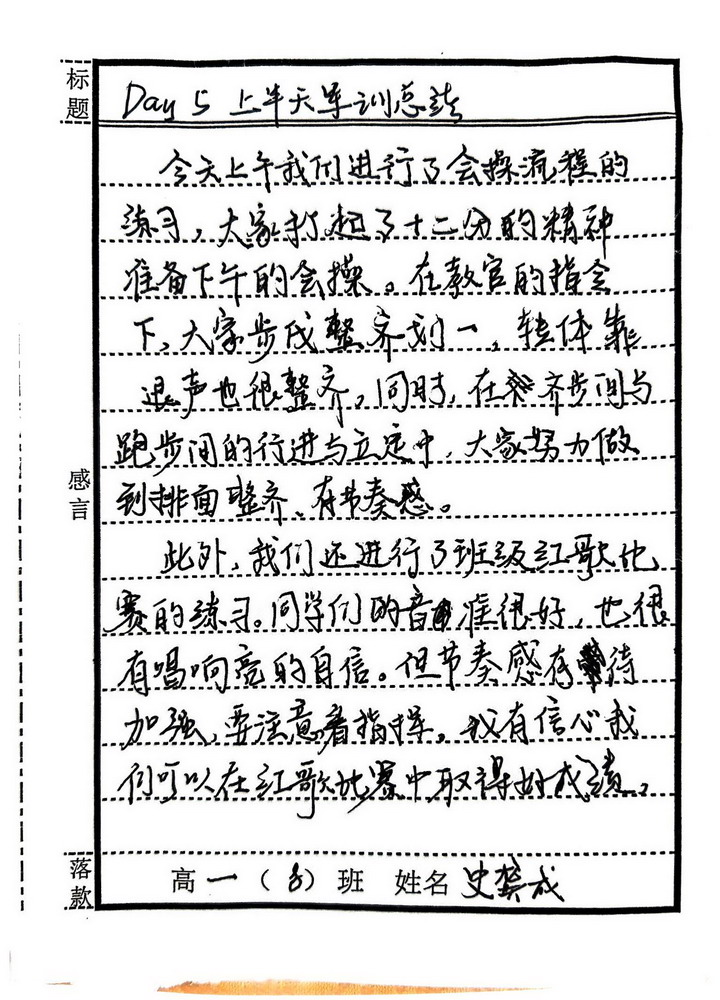 标题
Day 5 上半天军训总结
今天上午我们进行了会操流程的
练习，大家打起了十二分的精神
准备下午的会操。在教官的指令
下，大家步伐整齐划一，转体靠
退声也很整齐。同时，在齐步间与
跑步间的行进与立定中，大家努力做
到排面整齐、有节奏感。
此外，我们还进行了班级红歌比
赛的练习。同学们的音准很好，也很
有唱响亮的自信。但节奏感有待
加强，要注意看指挥。我有信心我
们可以在红歌比赛中取得好成绩。
感言
落款
高一（8）班 姓名 史龚成